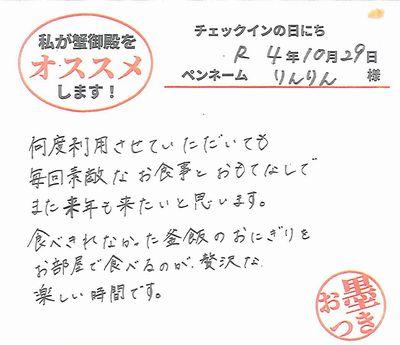 私が蟹御殿を
オススメ
します！
チェックインの日にち
R 4年10月29日
ペンネーム りんりん 様
何度利用させていただいても
毎回素敵なお食事とおもてなしで
また来年も来たいと思います。
食べきれなかった釜飯のおにぎりを
お部屋で食べるのが、贅沢な
楽しい時間です。
お墨つき